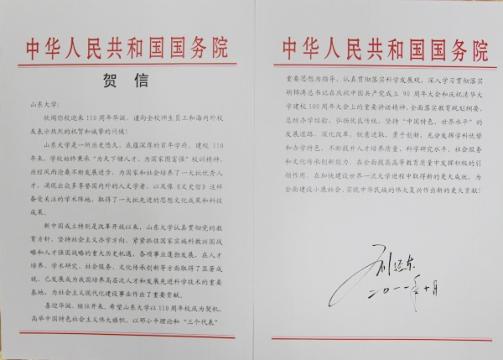 中华人民共和国国务院
贺信
山东大学：
欣闻你校迎来110周年华诞，谨向全校师生员工和海内外校
友表示热烈的祝贺和诚挚的问候！
山东大学是一所历史悠久、底蕴深厚的百年学府。建校110
年来，学校始终秉承“为天下储人才，为国家图富强”校训精神，
历经风雨沧桑不断发展进步，为国家和社会培养了一大批优秀人
才，涌现出众多享誉国内外的人文学者，以及像《文史哲》这样
备受关注的学术阵地，取得了一大批先进的思想文化成果和科技
成果。
新中国成立特别是改革开放以来，山东大学认真贯彻党的教
育方针，坚持社会主义办学方向，紧紧抓住国家实施科教兴国战
略和人才强国战略的重大历史机遇，各项事业蓬勃发展，在人才
培养、学术研究、社会服务、文化传承创新等方面取得了显著成
就，已发展成为我国培养高层次人才和发展先进科学技术的重要
基地，为社会主义现代化建设事业作出了重要贡献。
喜迎华诞，继往开来。希望山东大学以110周年校庆为契机，
高举中国特色社会主义伟大旗帜，以邓小平理论和“三个代表”
中华人民共和国国务院
重要思想为指导，认真贯彻落实科学发展观，深入学习贯彻落实
胡锦涛总书记在庆祝中国共产党成立90周年大会和庆祝清华大
学建校100周年大会上的重要讲话精神，全面落实教育规划纲要，
总结办学经验，弘扬优良传统，坚持“中国特色，世界水平”的
发展道路，深化改革，锐意进取，勇于创新，充分发挥学科优势
和办学特色，不断提升人才培养质量、科学研究水平、社会服务
和文化传承创新能力，在全面提高高等教育质量中发挥积极的引
领作用，在加快建设世界一流大学进程中取得新的更大成就，为
全面建设小康社会、实现中华民族的伟大复兴作出新的更大贡献！
刘延东
二〇一一年十月